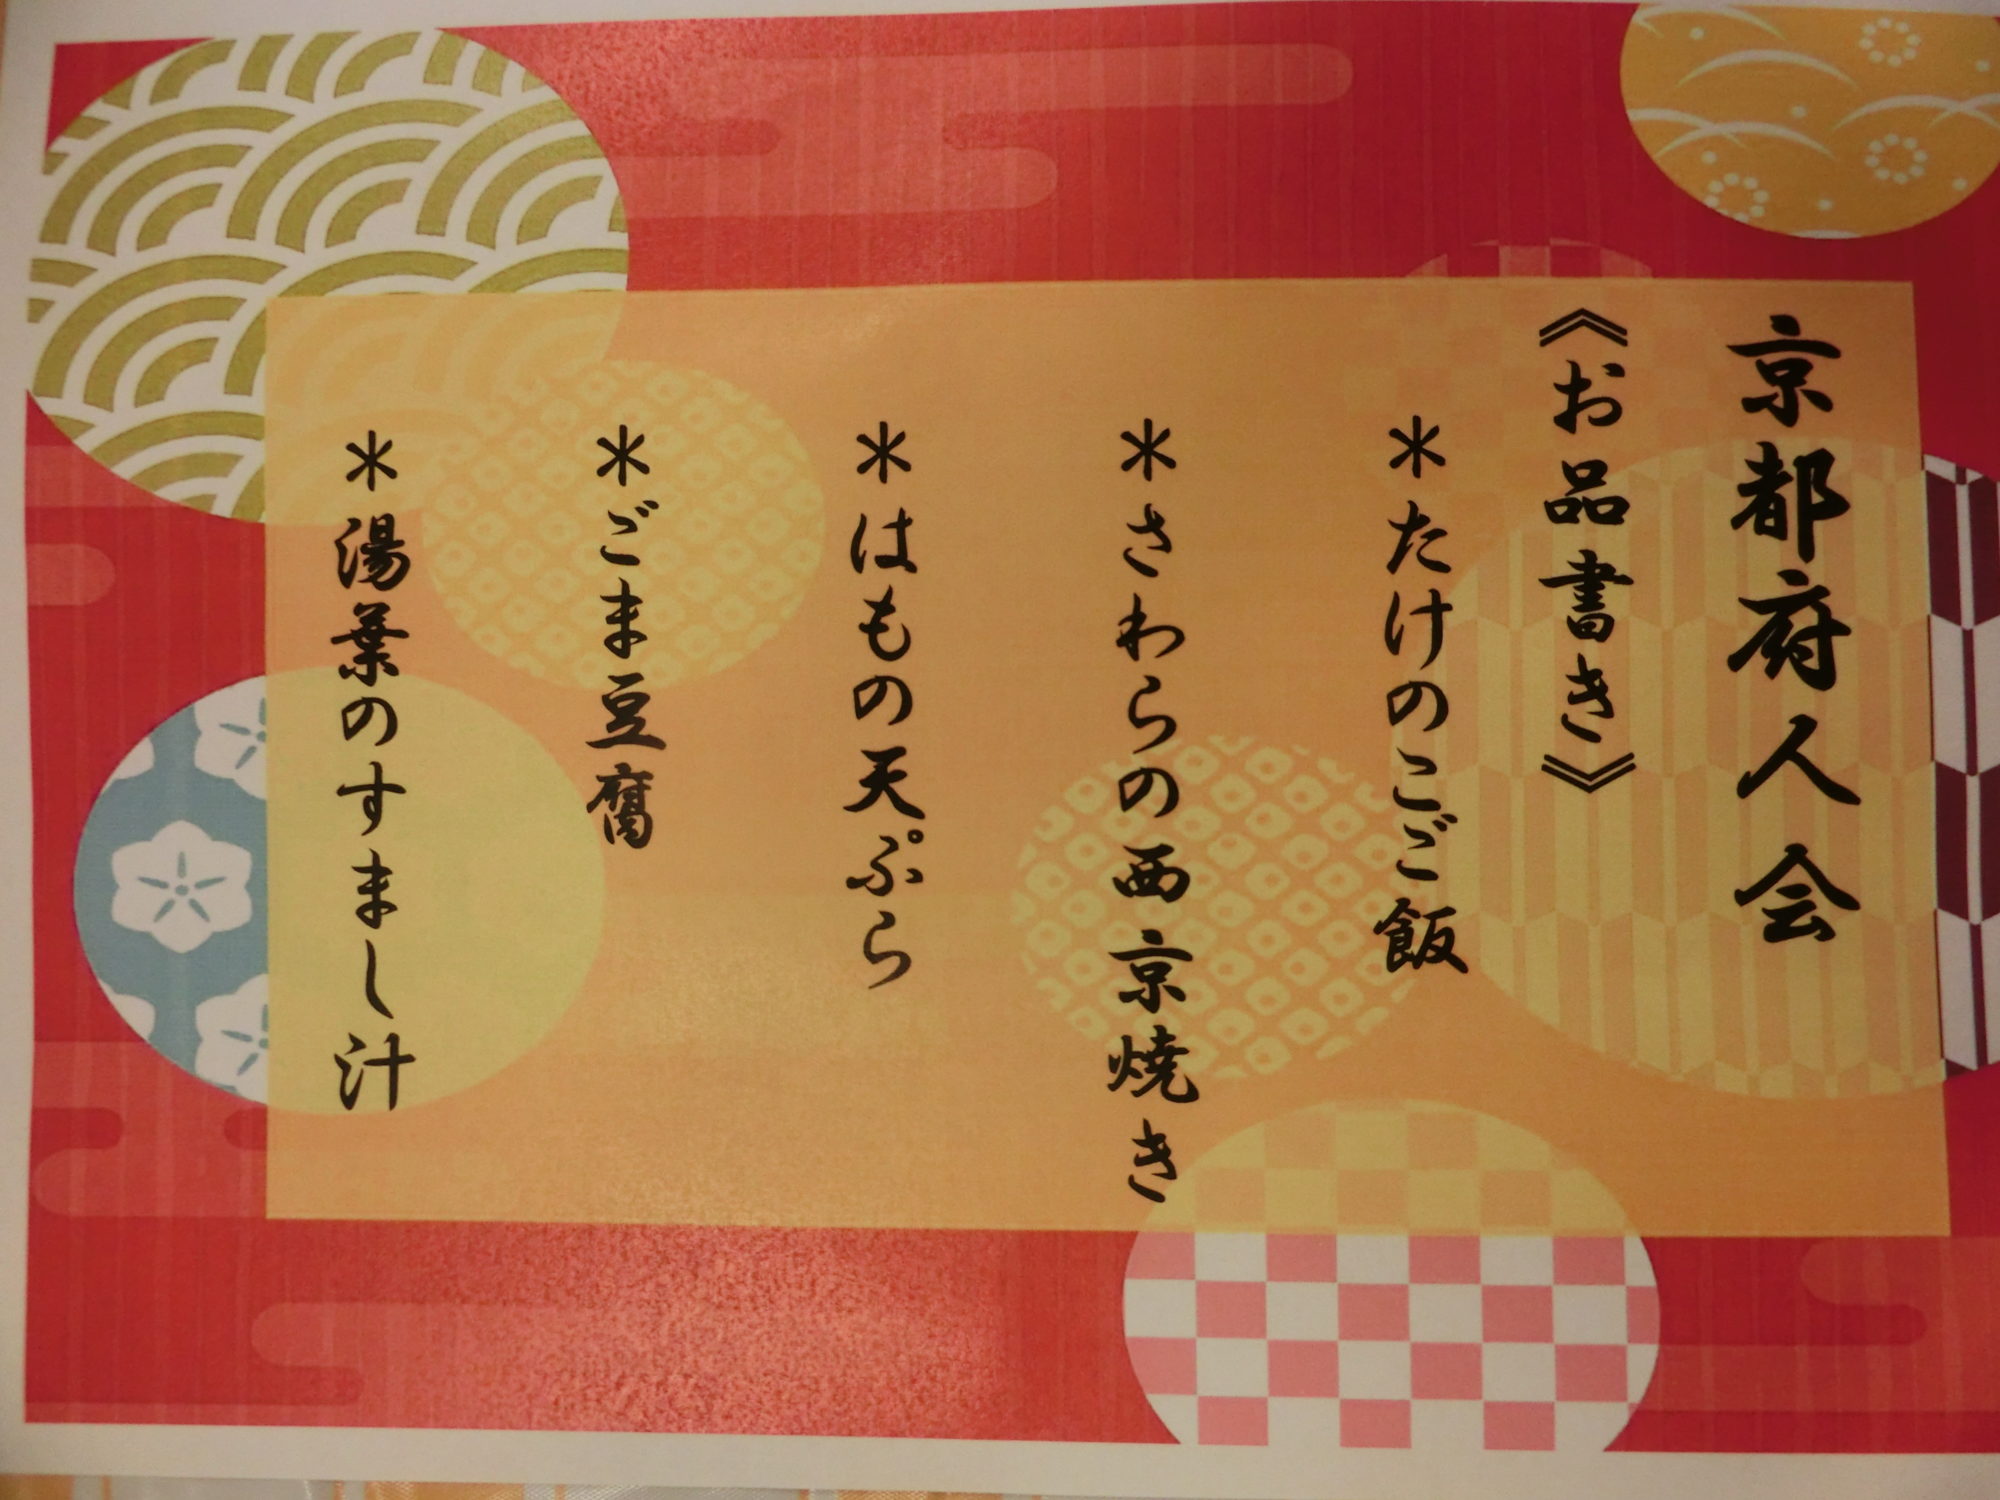 京都府人会
《お品書き》
＊たけのこご飯
＊さわらの西京焼き
＊はもの天ぷら
＊ごま豆腐
＊湯葉のすまし汁